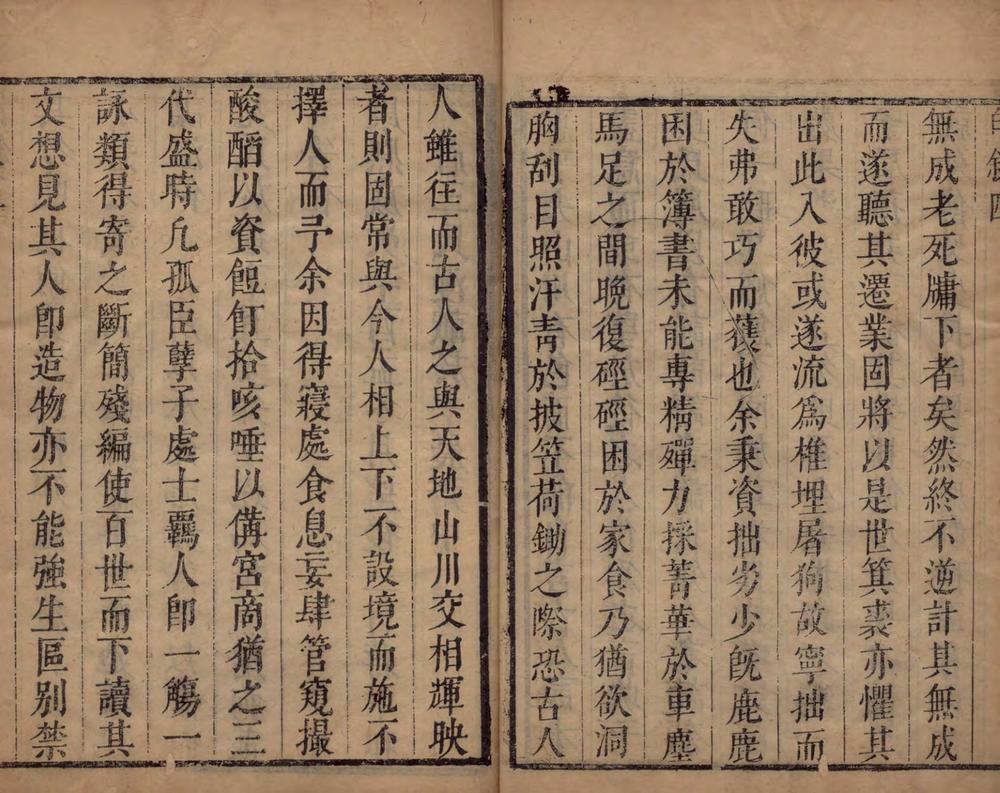 自敘四
無成老死牗下者矣然終不逆計其無成
而遂聽其遷業固將以是世箕裘亦懼其
出此入彼或遂流爲椎埋屠狗故寧拙而
失弗敢巧而獲也余秉資拙劣少旣鹿鹿
困於簿書未能專精殫力採菁華於車塵
馬足之間晚復硜硜困於家食乃猶欲洞
胸刮目照汗靑於披笠荷鋤之際恐古人
人雖往而古人之與天地山川交相輝映
者則固常與今人相上下不設境而施不
擇人而予余因得寢處食息妄肆管窺撮
酸醋以資飽飣拾咳唾以備宮商猶之三
代盛時凡孤臣孽子處士羈人卽一觴一
詠類得寄之斷簡殘編使百世而下讀其
文想見其人卽造物亦不能強生區別禁